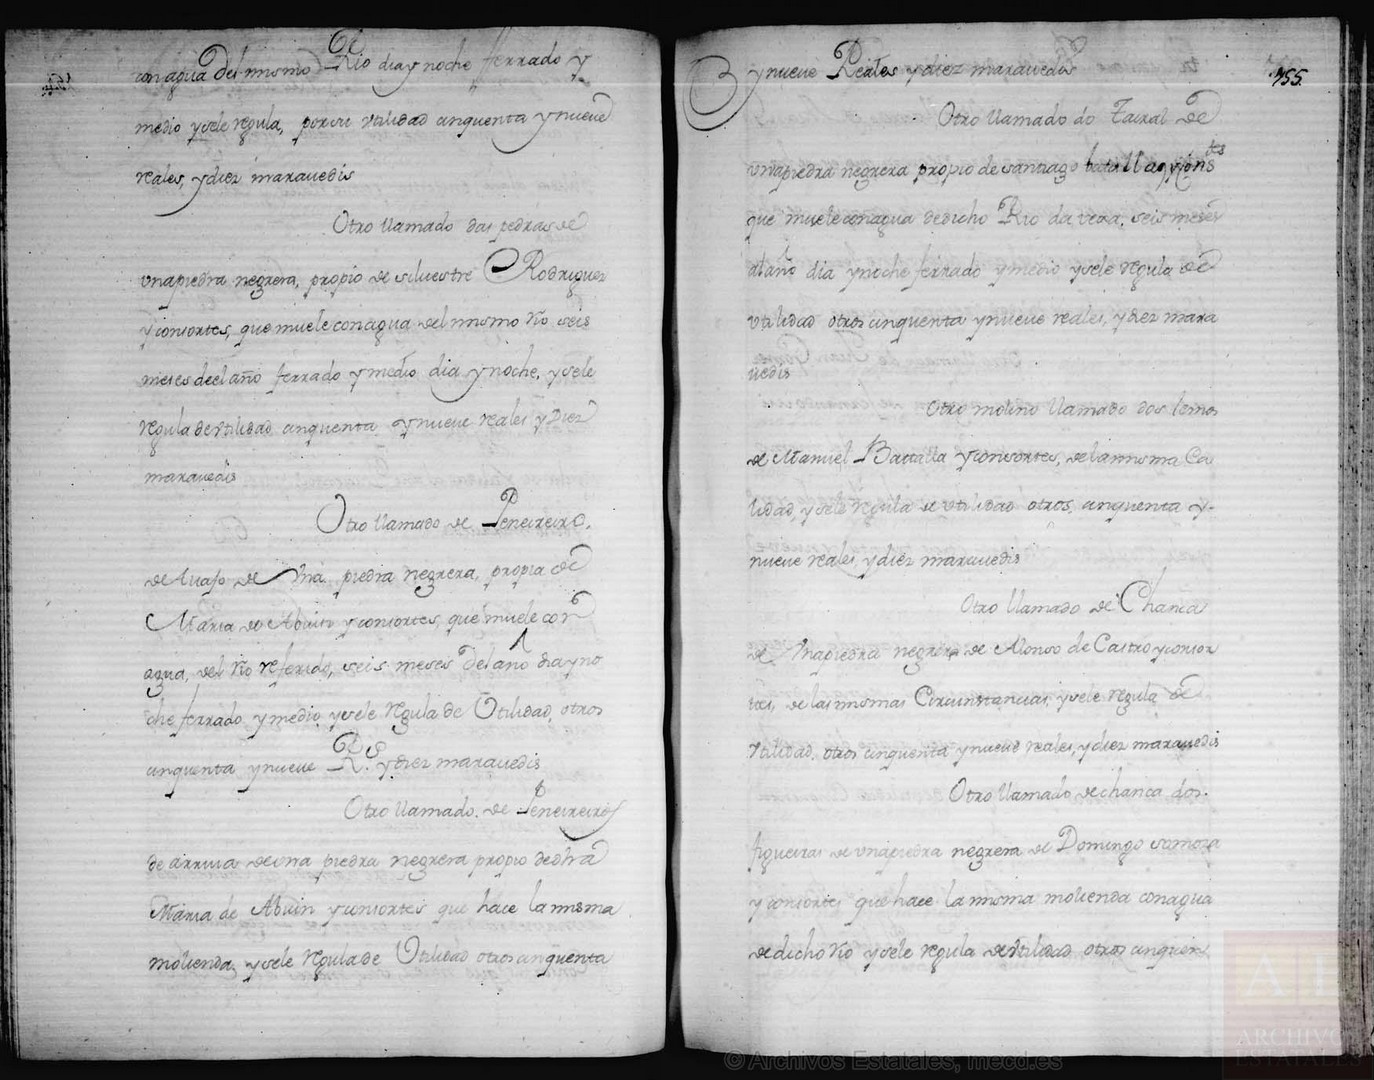 con agua del mismo Rio dia y noche ferrado y
medio y sele regula, por su utilidad cinquenta y nueve
reales, y diez maravedis
Otro llamado das pedras de
una piedra negrera, propio de silvestre Rodriguez
y consortes, que muele con agua del mismo rio seis
meses de el año ferrado y medio dia y noche, y sele
regula de utilidad cinquenta y nueve reales y Diez
maravedis
Otro llamado de Peneireiro,
de Avajo de una piedra negrera, propia de
Maria de Abuin y consortes, que muele con
agua, del rio referido, seis meses del año dia y no
che ferrado y medio y sele regula de Utilidad, otros
cinquenta y nueve R.s y diez maravedis
Otro llamado de Peneireiro
de arriva de una piedra negrera propio de dha
Maria de Abuin y consortes que hace la misma
molienda, y sele regula de Utilidad otros cinquenta
155
y nueve Reales y diez maravedis
Otro llamado do Tairal de
una piedra negrera propio de santiago batalla y cons.tes
que muele con agua de dicho Rio da veza, seis meses
al año dia y noche ferrado y medio y sele regula de
utilidad otros cinquenta y nueve reales, y diez mara
vedis
Otro molino llamado dos lemos
de Manuel Battalla y consortes, de la misma Ca
lidad, y sele regula de utilidad otros, cinquenta y
nueve reales, y diez maravedis
Otro llamado de Chanca
de una piedra negrera de Alonso de Castro y consor
tes, de las mismas Circunstancias, y sele regula de
utilidad, otros cinquenta y nueve reales, y diez maravedis
Otro llamado de chanca dos.
figueiras de una piedra negrera de Domingo samoza
y consortes que hace la misma molienda con agua
de dicho rio y sele regula de utilidad otros cinquen
ARCHIVOS
ESTATALES
© Archivos Estatales, mecd.es